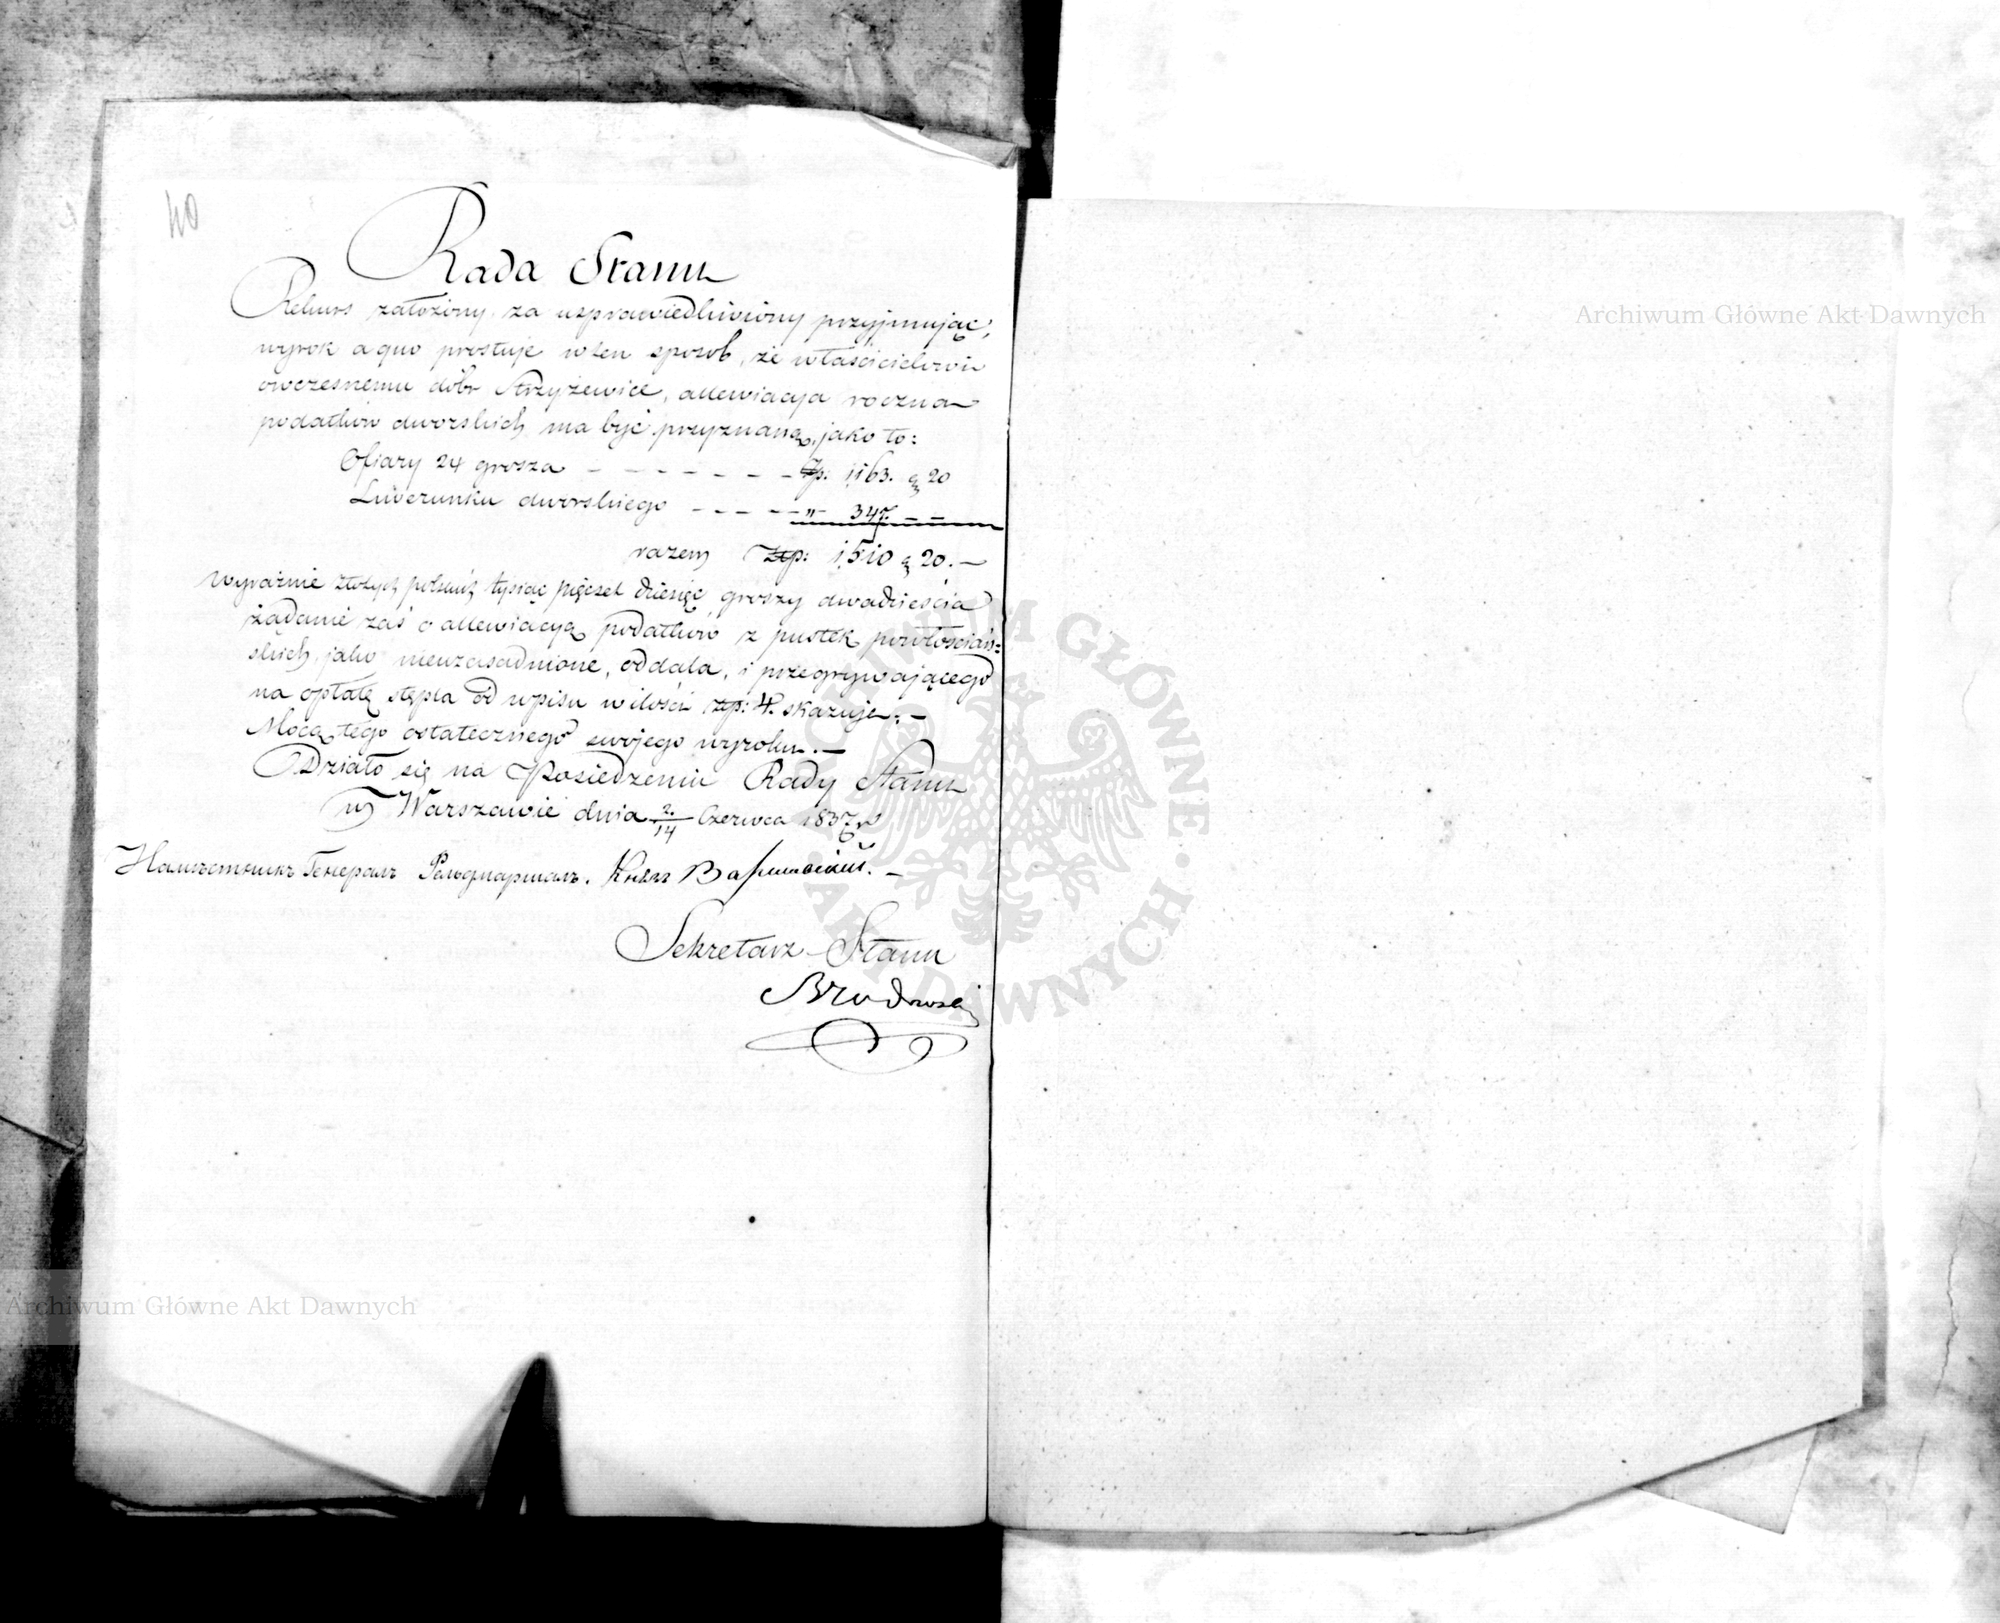 40
Rada Stanu
Rekurs założony za usprawiedliwiony przyjmując,
wyrok a quo prostuje w ten sposob, że właścicielowi
owczesnemu dóbr Strzyżewice, allewiacya roczna
podatków dworskich ma być przyznaną, jako to:
Ofiary 24 grosza - - - - - - - Zp: 1,163. g 20
Liwerunku dworskiego - - - - - " - 347. - -
razem Złp: 1,510 g 20. -
wyraźnie złotych polskich tysiąc pięćset dziesięć groszy dwadzieścia
żądanie zaś o allewiacyą podatków z pustek powłościań=
skich, jako nieuzasadnione, oddala, i przegrywającego
na opłatę stępla od wpisu w ilości złp: 4. skazuje. -
Mocą tego ostatecznego swojego wyroku. -
Działo się na Posiedzeniu Rady Stanu
w Warszawie dnia 2/14 Czerwca 1837 r
Намѣстникъ Генералъ Фельдмаршалъ. Князь Варшавскій. -
Sekretarz Stanu
Brodowski
Archiwum Główne Akt Dawnych
Archiwum Główne Akt Dawnych
ARCHIWUM GŁÓWNE · AKT DAWNYCH ·